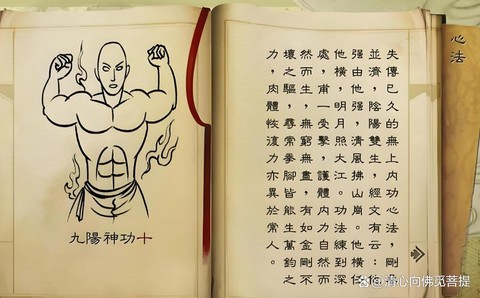 心法
失傳已久的無上内功心法，剛柔
並濟，陰陽雙生，經文有云：他
强由他强，清風拂山崗。他橫任
他橫，明月照大江。功法練到深
處，甫一受擊，護體内力自
然而生，無窮無盡。有如金剛不
壞之驅，尋常拳腳皆能生萬鈞之
力，肉體恢復力亦異於常人。
九陽神功十
清心向佛觅菩提